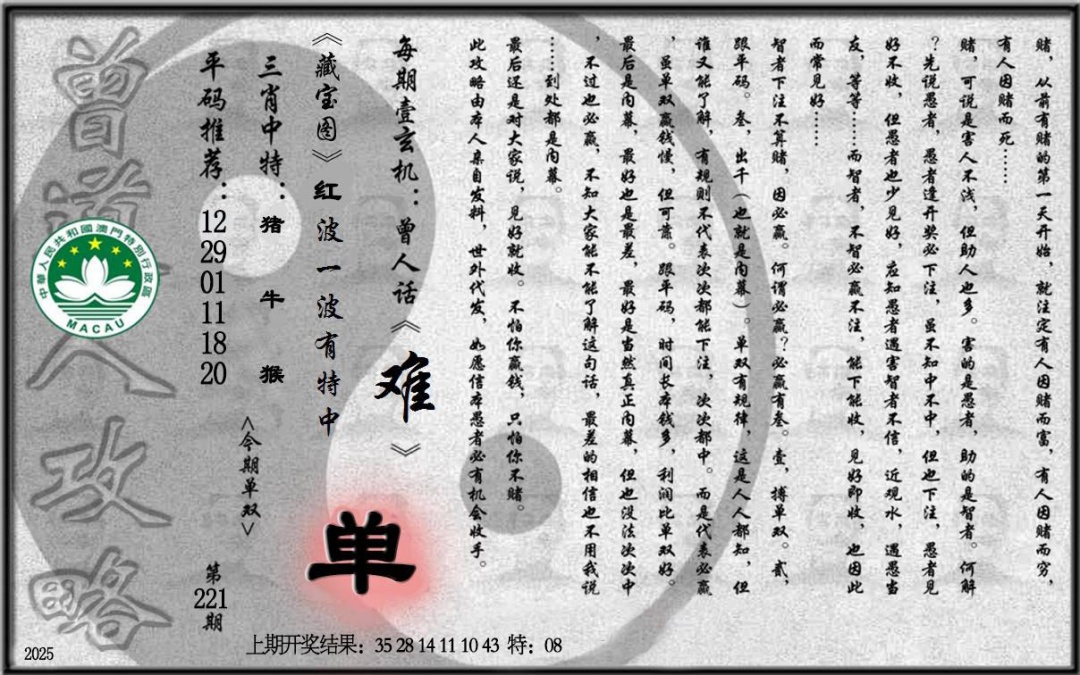 赌，从前有赌的第一天开始，就注定有人因赌而富，有人因赌而穷，
有人因赌而死……
赌，可说是害人不浅，但助人也多。害的是愚者，助的是智者。何解
？先说愚者，愚者逢开奖必下注，虽不知中不中，但也下注，愚者见
好不收，但愚者也少见好，应知愚者遇害智者不信，近观水，遇愚当
友，等等……而智者，不智必赢不注，能下能收，见好即收，也因此
而常见好……
智者下注不算赌，因必赢。何谓必赢？必赢有叁。壹，搏单双。贰，
跟单码。叁，出千（也就是内幕）。单双有规律，这是人人都知，但
谁又能了解，有规则不代表次次都能下注，次次都中。而是代表必赢
，虽单双赢钱慢，但可靠。跟单码，时间长本钱多，利润比单双好。
最后是内幕，最好也是最差，最好是当然真正内幕，但也没法次次中
，不过也必赢，不知大家能不能了解这句话，最差的相信也不用我说
……到处都是内幕。
最后还是对大家说，见好就收。不怕你赢钱，只怕你不赌。
此攻略由本人亲自发料，世外代发，如愿信本愚者必有机会收手。
每期壹玄机：曾人话《难》
《藏宝图》红波一波有特中
单
三肖中特：猪牛猴
<今期单双>
平码推荐：12 29 01 11 18 20
第221期
曾道人攻略
中華人民共和國澳門特別行政區
MACAU
上期开奖结果：35 28 14 11 10 43 特：08
2025